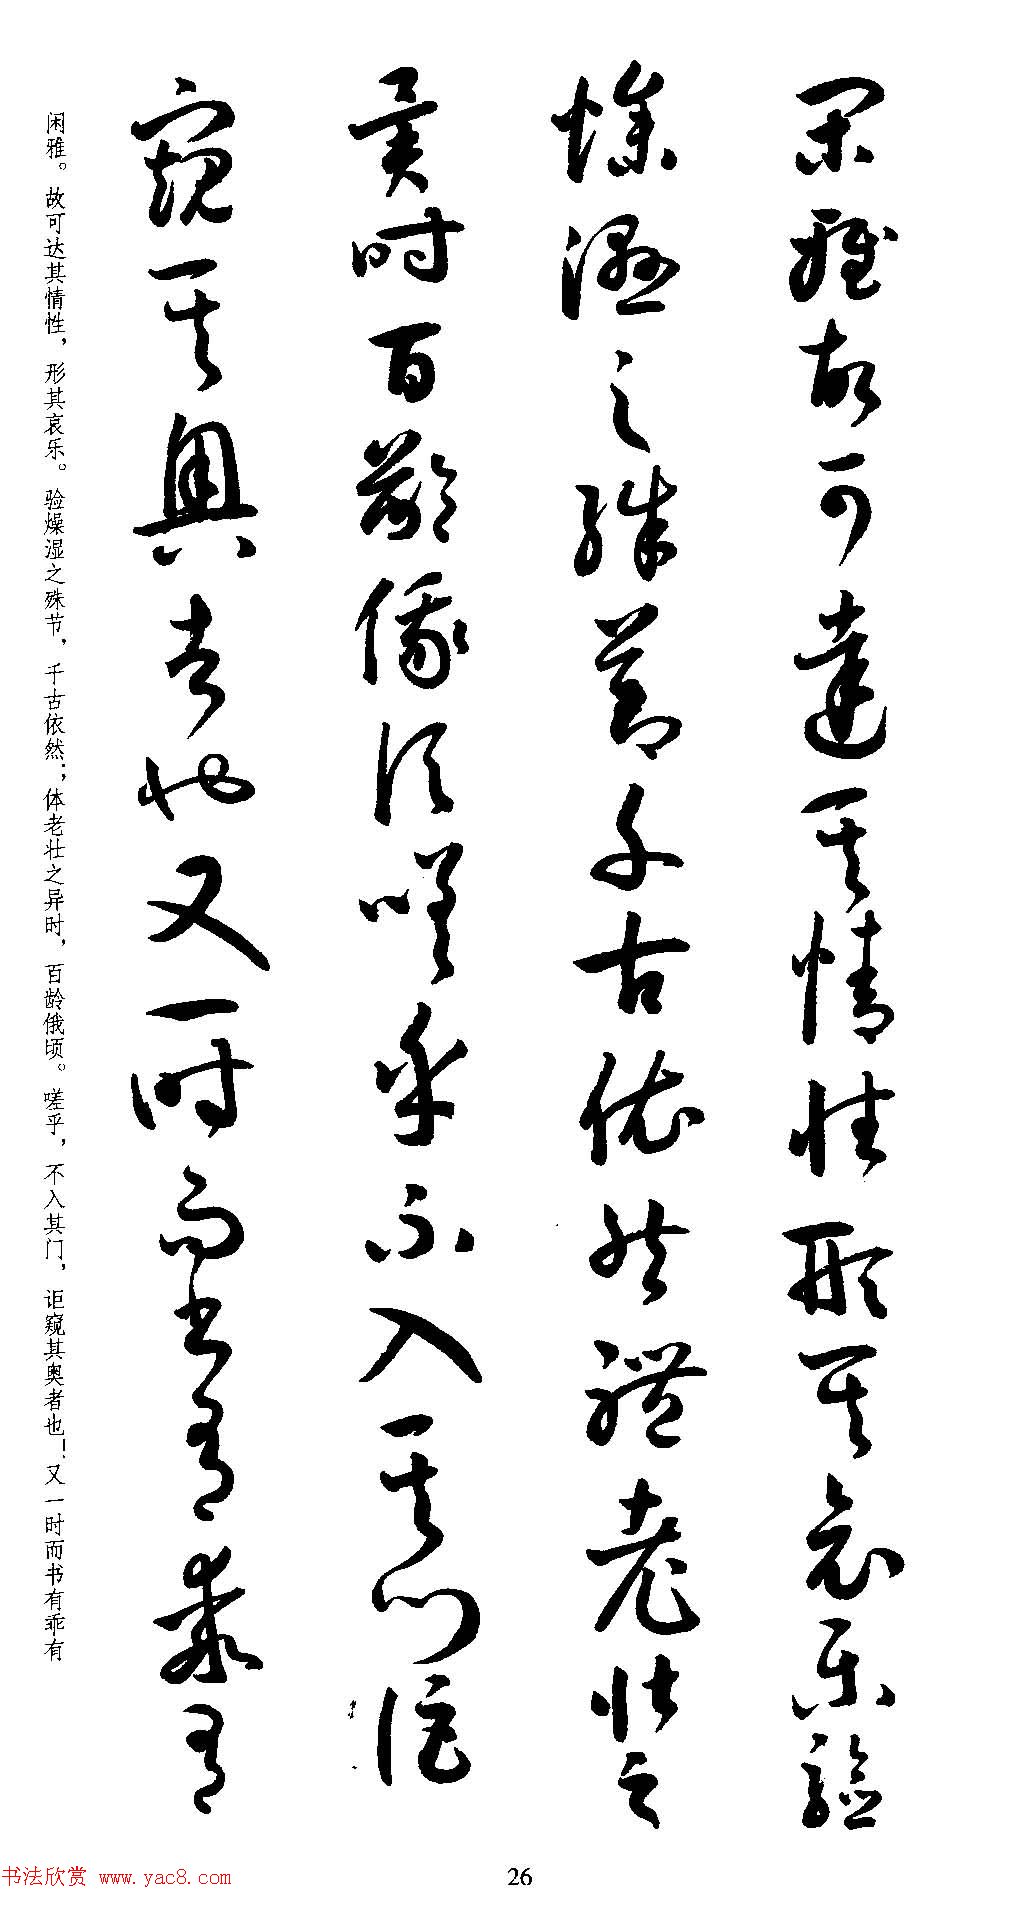 闲雅故可達其情性形其哀乐驗
燥濕之殊節千古依然體老壯之
異时百龄俄顷嗟乎不入其门讵
窥其奥者也又一时而书有乖有
闲雅。故可达其情性，形其哀乐。验燥湿之殊节，千古依然；体老壮之异时，百龄俄顷。嗟乎，不入其门，讵窥其奥者也！又一时而书有乖有
书法欣赏 www.yac8.com
26